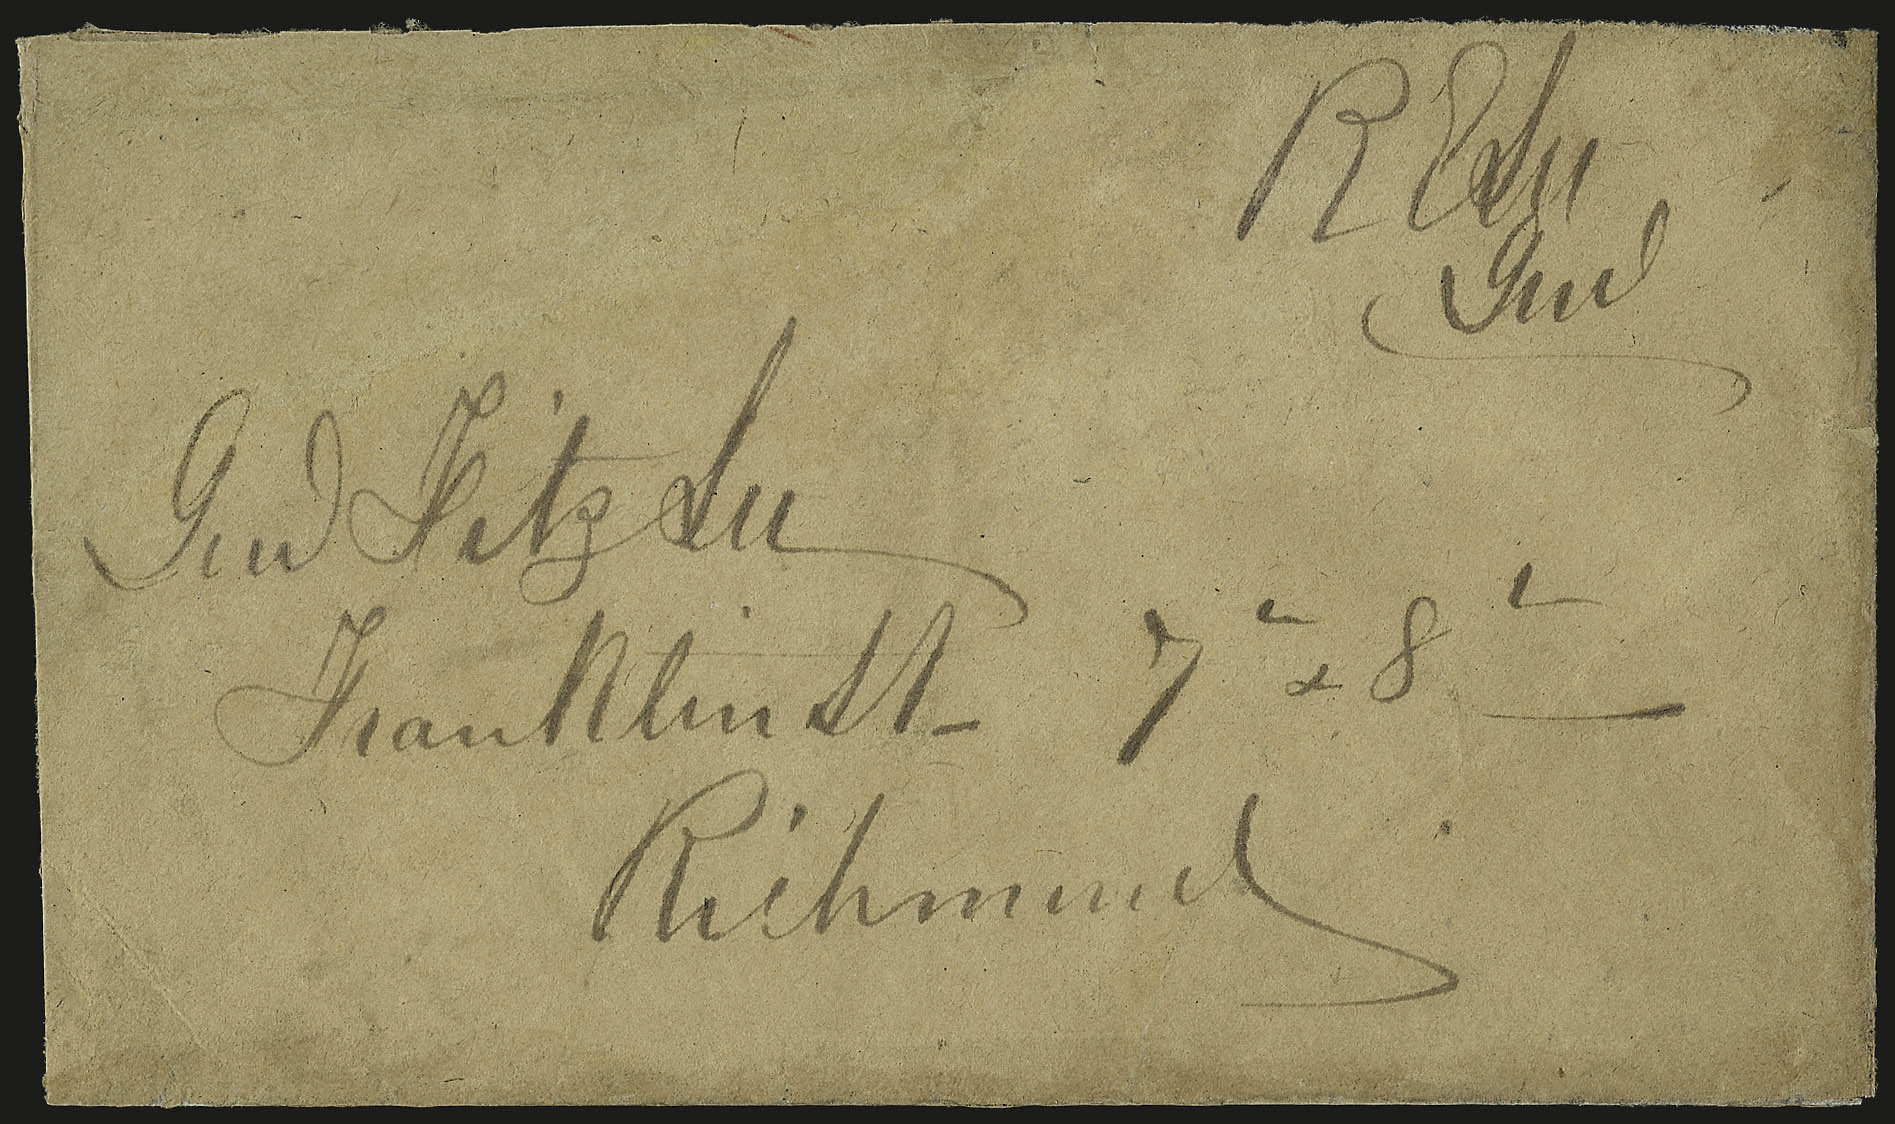 R E Lee
Genl
Genl Fitz Lee
Franklin St - 7th & 8th
Richmond